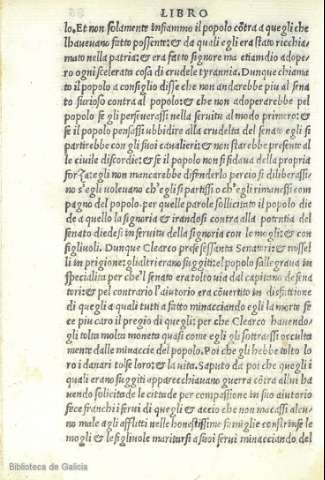 LIBRO
lo. Et non solamente infiammo il popolo cōtra a quegli che
lhaueuano fatto possente: & da quali egli era stato ricchia
mato nella patria: & era fatto signore ma etiamdio adope-
ro ogni scelerato cosa di crudele tyrannia. Dunque chiama
to il popolo a consiglio disse che non andarebbe piu al sena
to furioso contra al popolo: & che non adoperarebbe pel
popolo se gli perseuerassi nella seruitu al modo primero: &
se il popolo pensassi ubbidire alla crudelta del senato egli si
partirebbe con gli suoi caualieri: & non starebbe presente al
le ciuile discordie: & se il popolo non si fidaua della propria
forza: egli non mancarebbe difenderlo percio si diliberassi-
no s'egli uoleuano ch'egli si partissi o ch'egli rimanessi com
pagno del popolo. per quelle parole sollicitato il popolo die
de a quello la signoria & irandosi contra alla potentia del
senato diedesi in seruitu della signoria con le moglie: & con
figliuoli. Dunque Clearco prese sessanta Senatori: & missel
li in prigione: gli altri erano fuggiti: el popolo s'allegraua in
specialita per che'l senato era tolto uia dal capitano de sena
tori: & pel contrario l'aiutorio era cōuertito in disfattione
di quegli a quali tutti a fatto minacciando egli la morte fe
ce piu caro il pregio di quegli: per che Clearco hauendo-
gli tolta molta moneta quasi come egli gli sottrassi occulta
mente dalle minaccie del popolo. Poi che gli hebbe tolto lo
ro i danari tolse loro: & la uita. Saputo da poi che quegli i
quali erano fuggiti apparecchiauano guerra cōtra allui ha
uendo solicitate le cittade per compassione in suo aiutorio
fece franchi i serui di quegli & accio che non macassi alcu-
no male agli afflitti nelle honestissime famiglie constrinse le
mogli & le figliuole maritarsi a suoi serui minacciando del
Biblioteca de Galicia